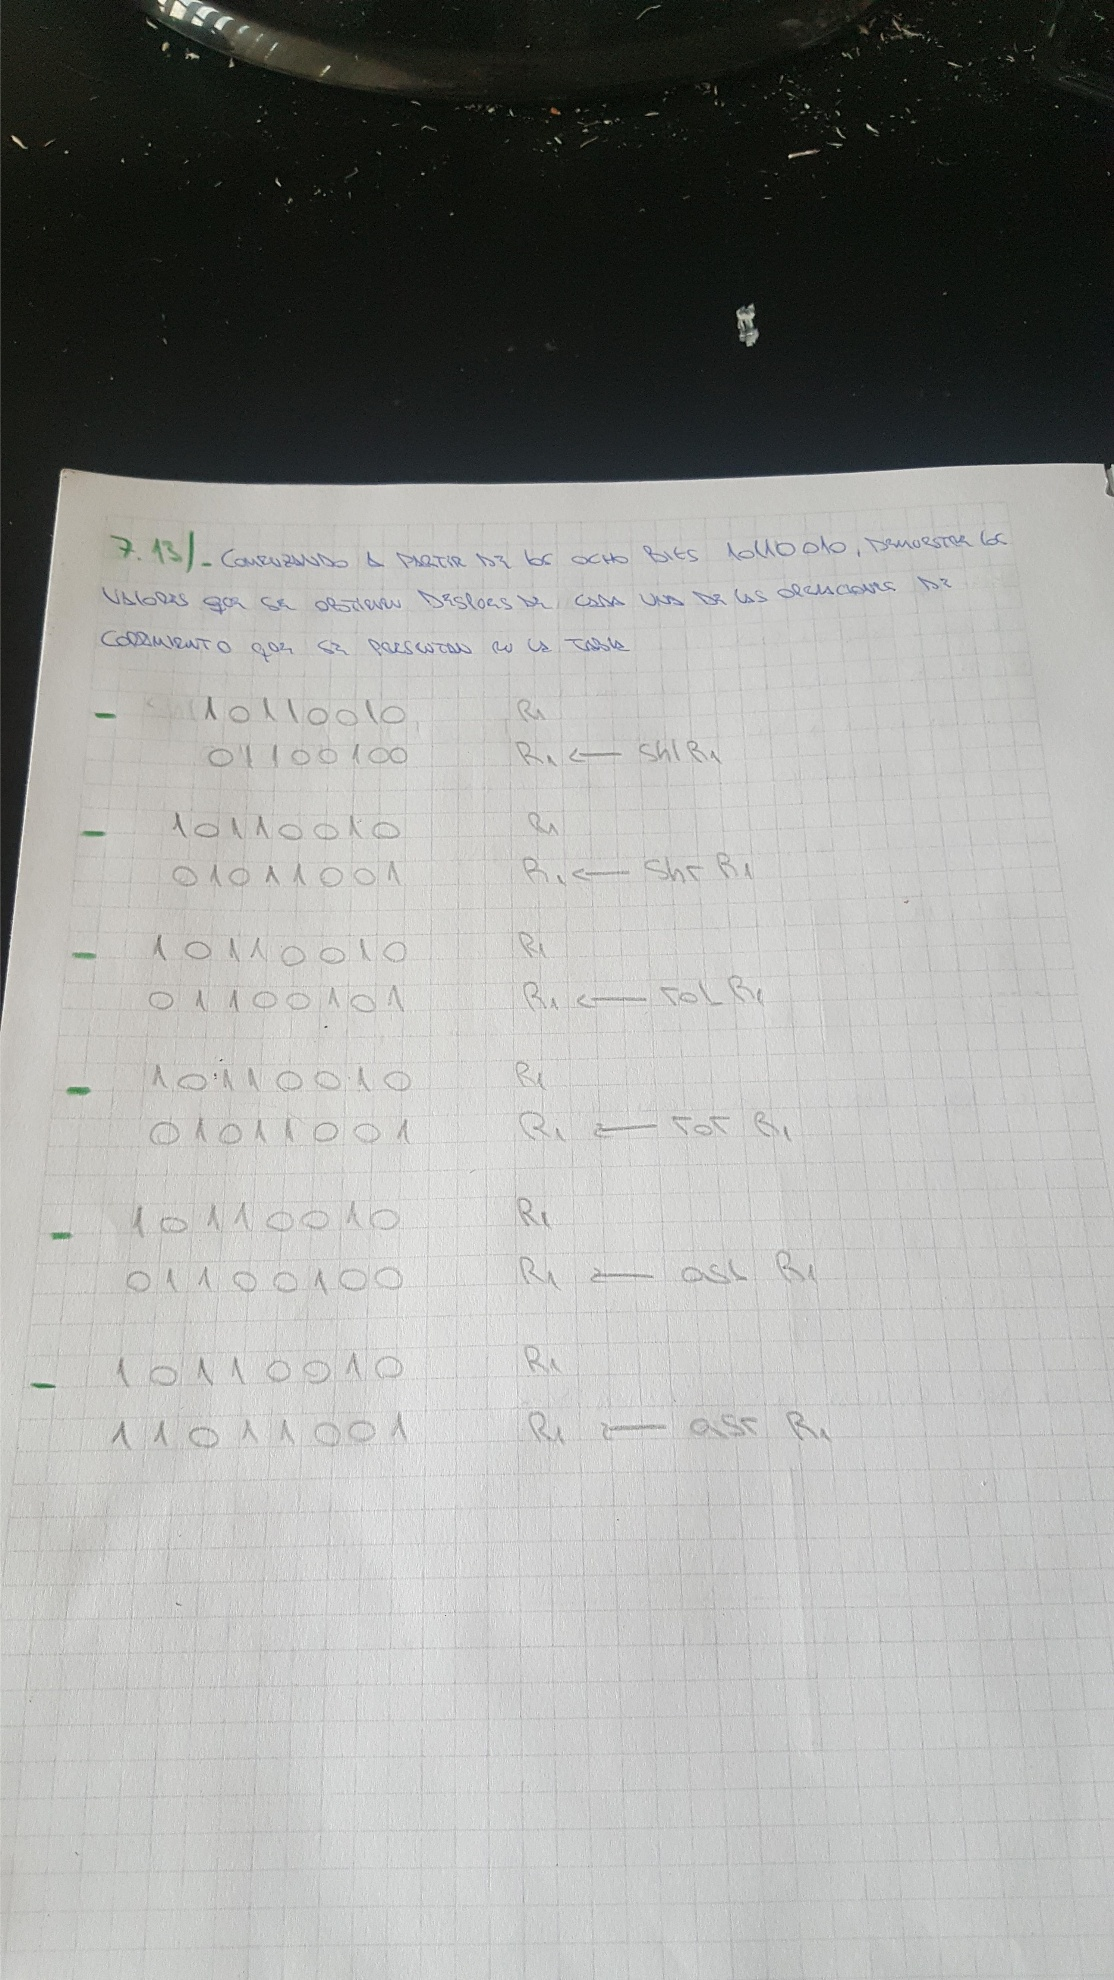 7.13/- COMENZANDO A PARTIR DE LOS OCHO BITS 10110010, DEMUESTRE LOS
VALORES QUE SE OBTIENEN DESPUES DE CADA UNA DE LAS OPERACIONES DE
CORRIMIENTO QUE SE PRESENTAN EN LA TABLA
- 10110010 R1
01100100 R1 ← shl R1
- 10110010 R1
01011001 R1 ← shr R1
- 10110010 R1
01100101 R1 ← rol R1
- 10110010 R1
01011001 R1 ← ror R1
- 10110010 R1
01100100 R1 ← asl R1
- 10110010 R1
11011001 R1 ← asr R1